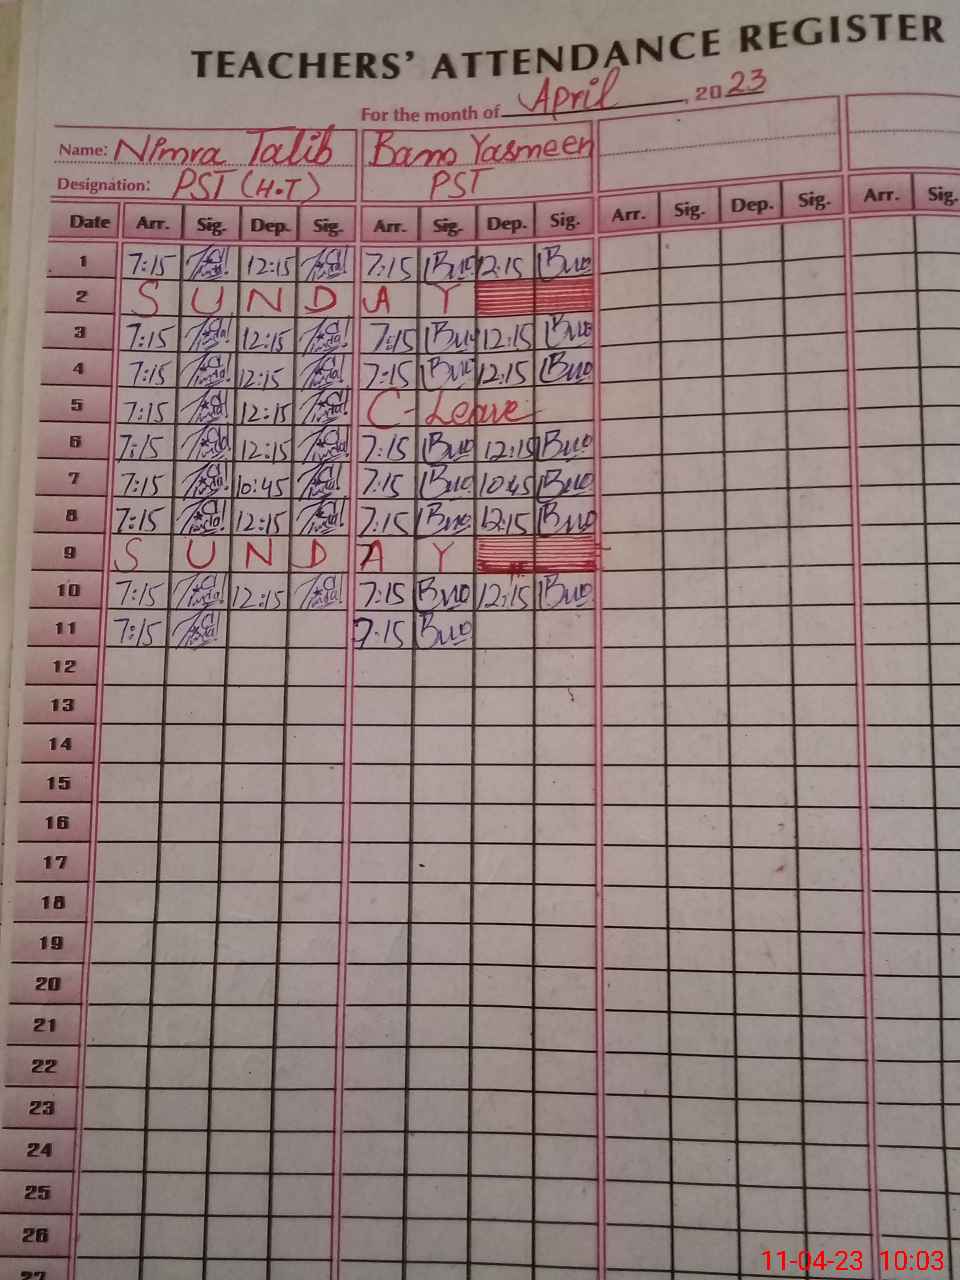 TEACHERS' ATTENDANCE REGISTER
For the month of April, 2023
Name: Nimra Talib Bano Yasmeen
Designation: PST (H.T) PST
Date Arr. Sig. Dep. Sig. Arr. Sig. Dep. Sig. Arr. Sig. Dep. Sig. Arr. Sig.
1 7:15 12:15 7:15 Buo 12:15 Buo
2 S U N D A Y
3 7:15 12:15 7:15 Buo 12:15 Buo
4 7:15 12:15 7:15 Buo 12:15 Buo
5 7:15 12:15 C-Leave
6 7:15 12:15 7:15 Buo 12:15 Buo
7 7:15 10:45 7:15 Buo 10:45 Buo
8 7:15 12:15 7:15 Buo 12:15 Buo
9 S U N D A Y
10 7:15 12:15 7:15 Buo 12:15 Buo
11 7:15 7:15 Buo
12
13
14
15
16
17
18
19
20
21
22
23
24
25
26
27
11-04-23 10:03